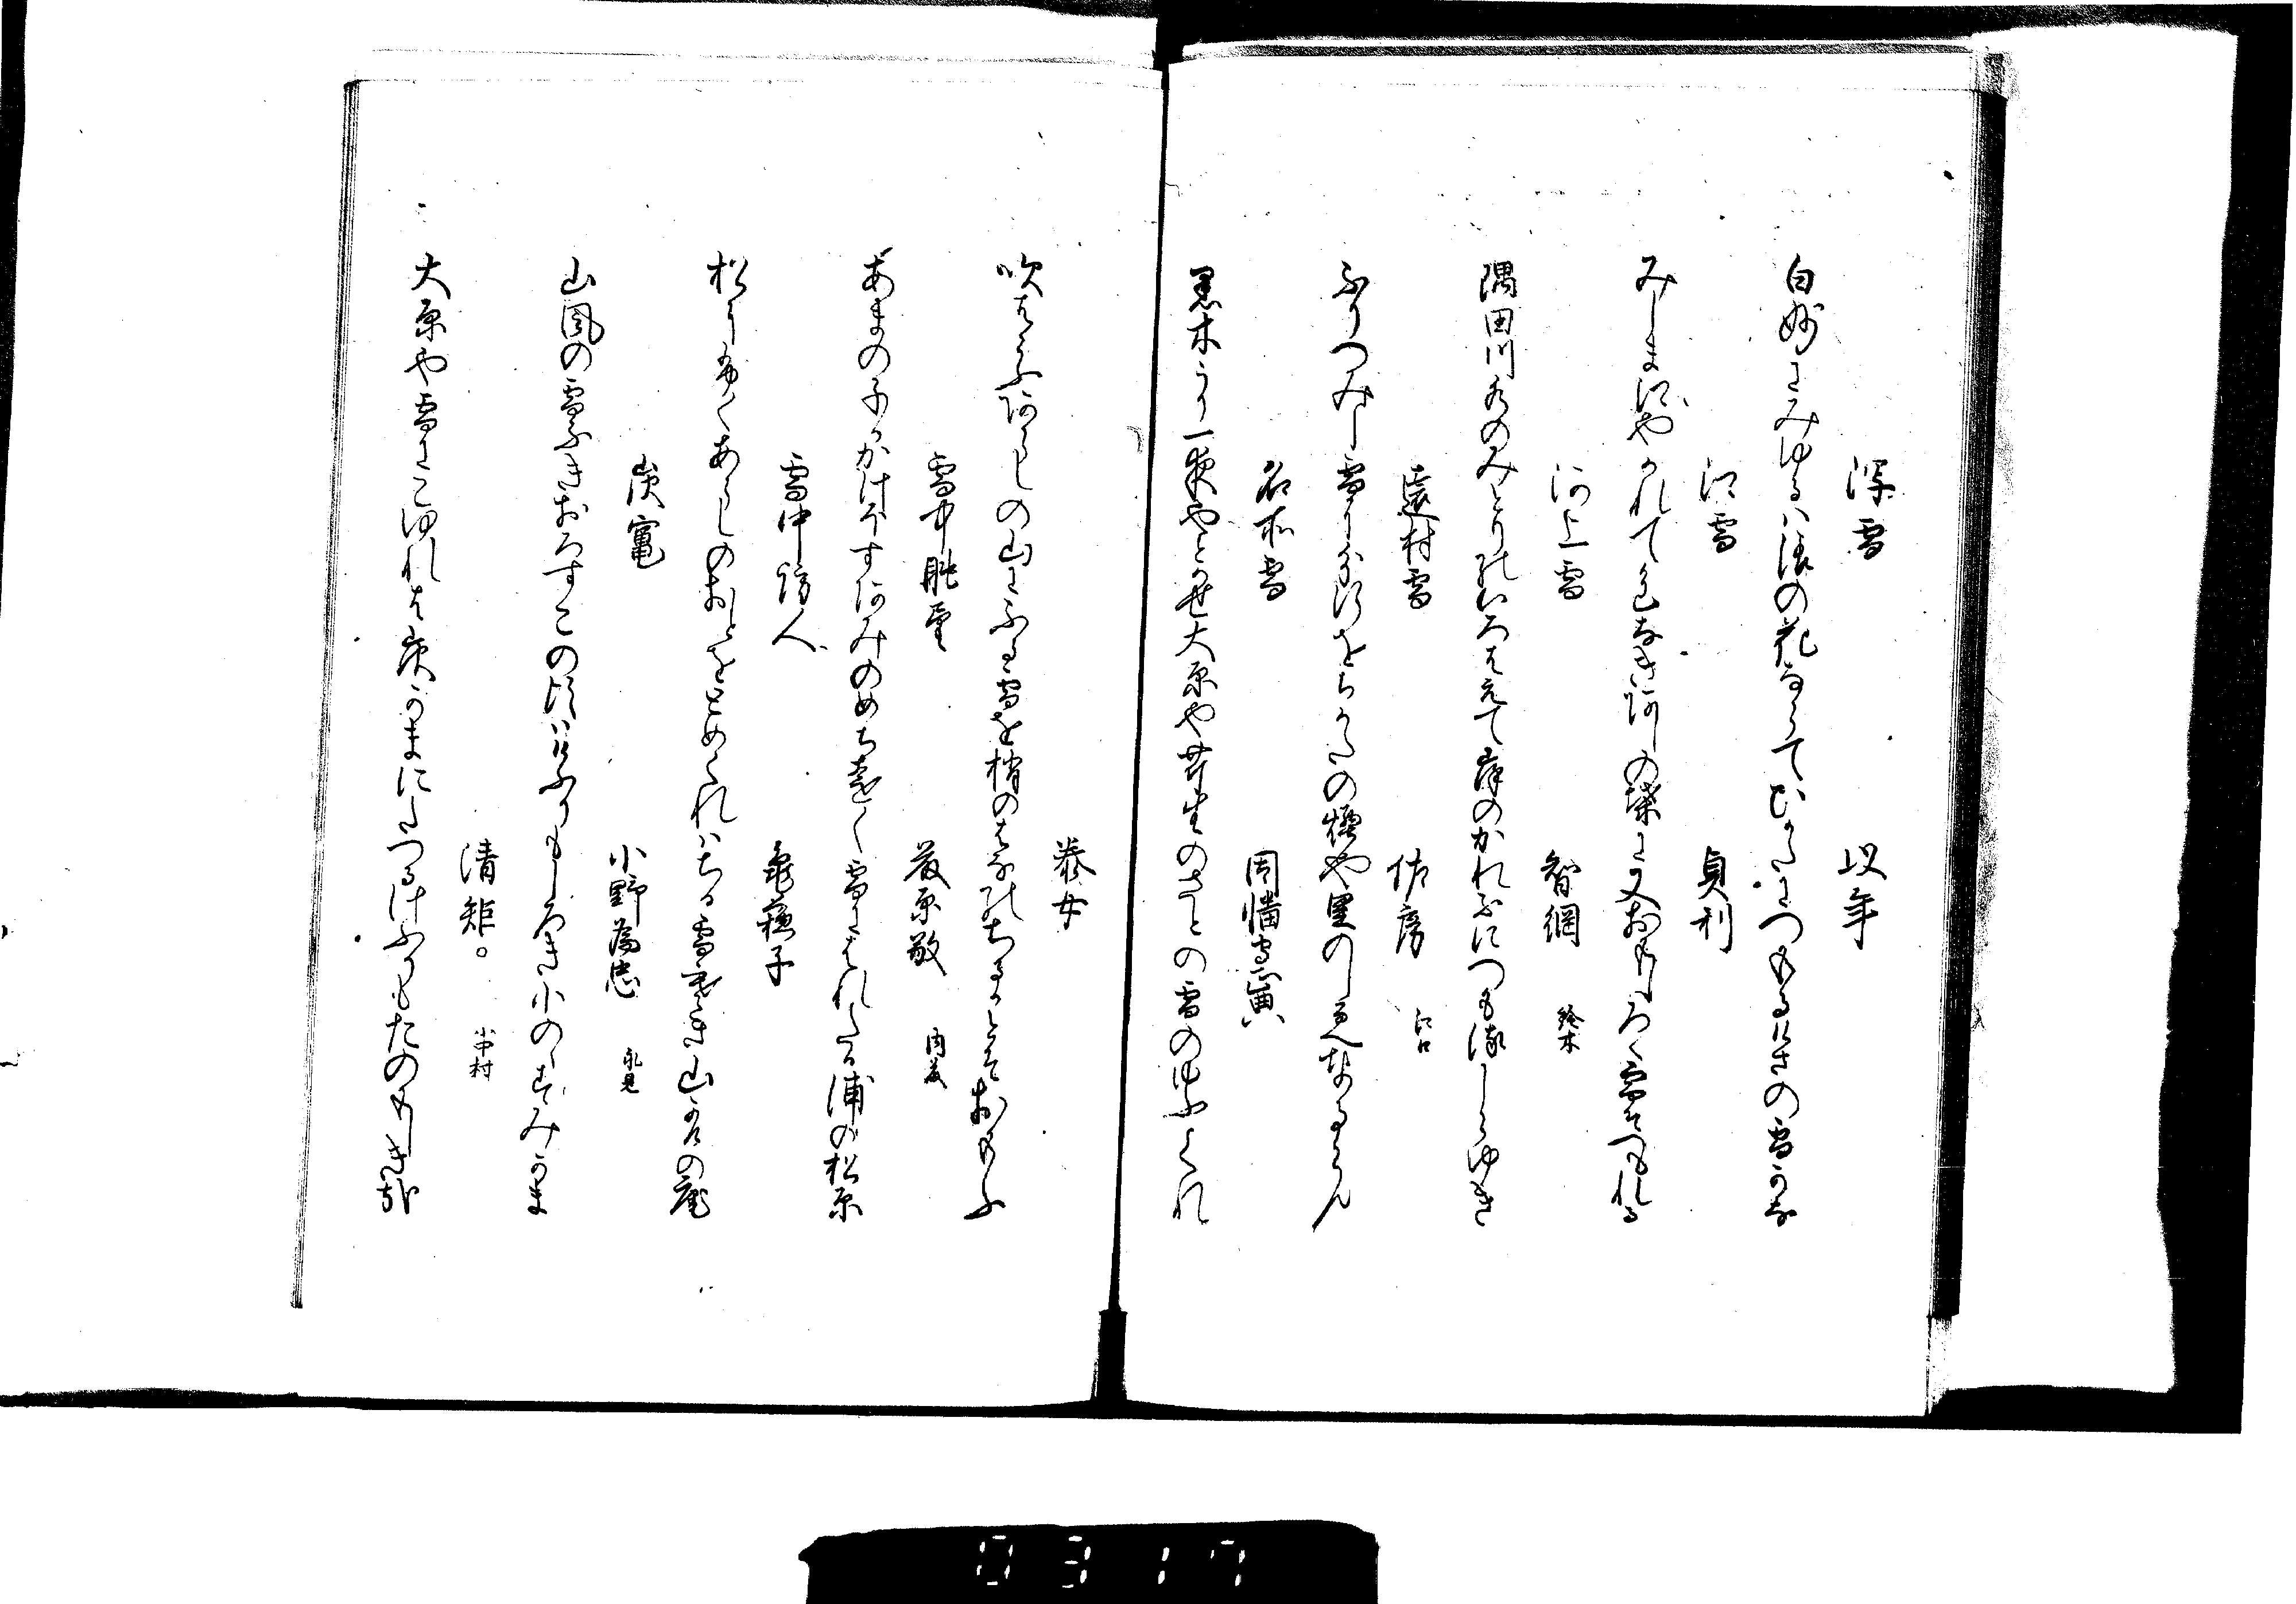 深雪　以年
白妙にみゆるは浪の花ならてひかたにつもるけさの雪かな
江雪　貞利
みしま江やかれて色なき芦の葉に又おもしろく雪そつもれる
河上雪　智網　鈴木
隅田川水のみとりのいろはえて岸のかれふにつもるしらゆき
遠村雪　佐房　江口
ふりつみし雪にしをちかたの煙や里のしるへなるらん
名所雪　因幡守正寅
黒木うり一夜やとかせ大原や芹生のさとの雪の夕くれ
泰女
吹はらふあらしの山にふる雪を梢のはなのちるかとそおもふ
雪中眺望　菅原敬　内藤
あまの子かかけほすあみのめち遠く雪にはれたる浦の松原
雪中待人　亀薤子
松にふくあらしのおとをとめくれはちる雪寒き山かけの庵
炭竈　小野為忠　永見
山風の雪ふきおろすこの頃はけふりもしろき小のゝすみかま
清矩　小中村
大原や雪にこゆれは炭かまにたつるけふりもたのもしき哉
0317